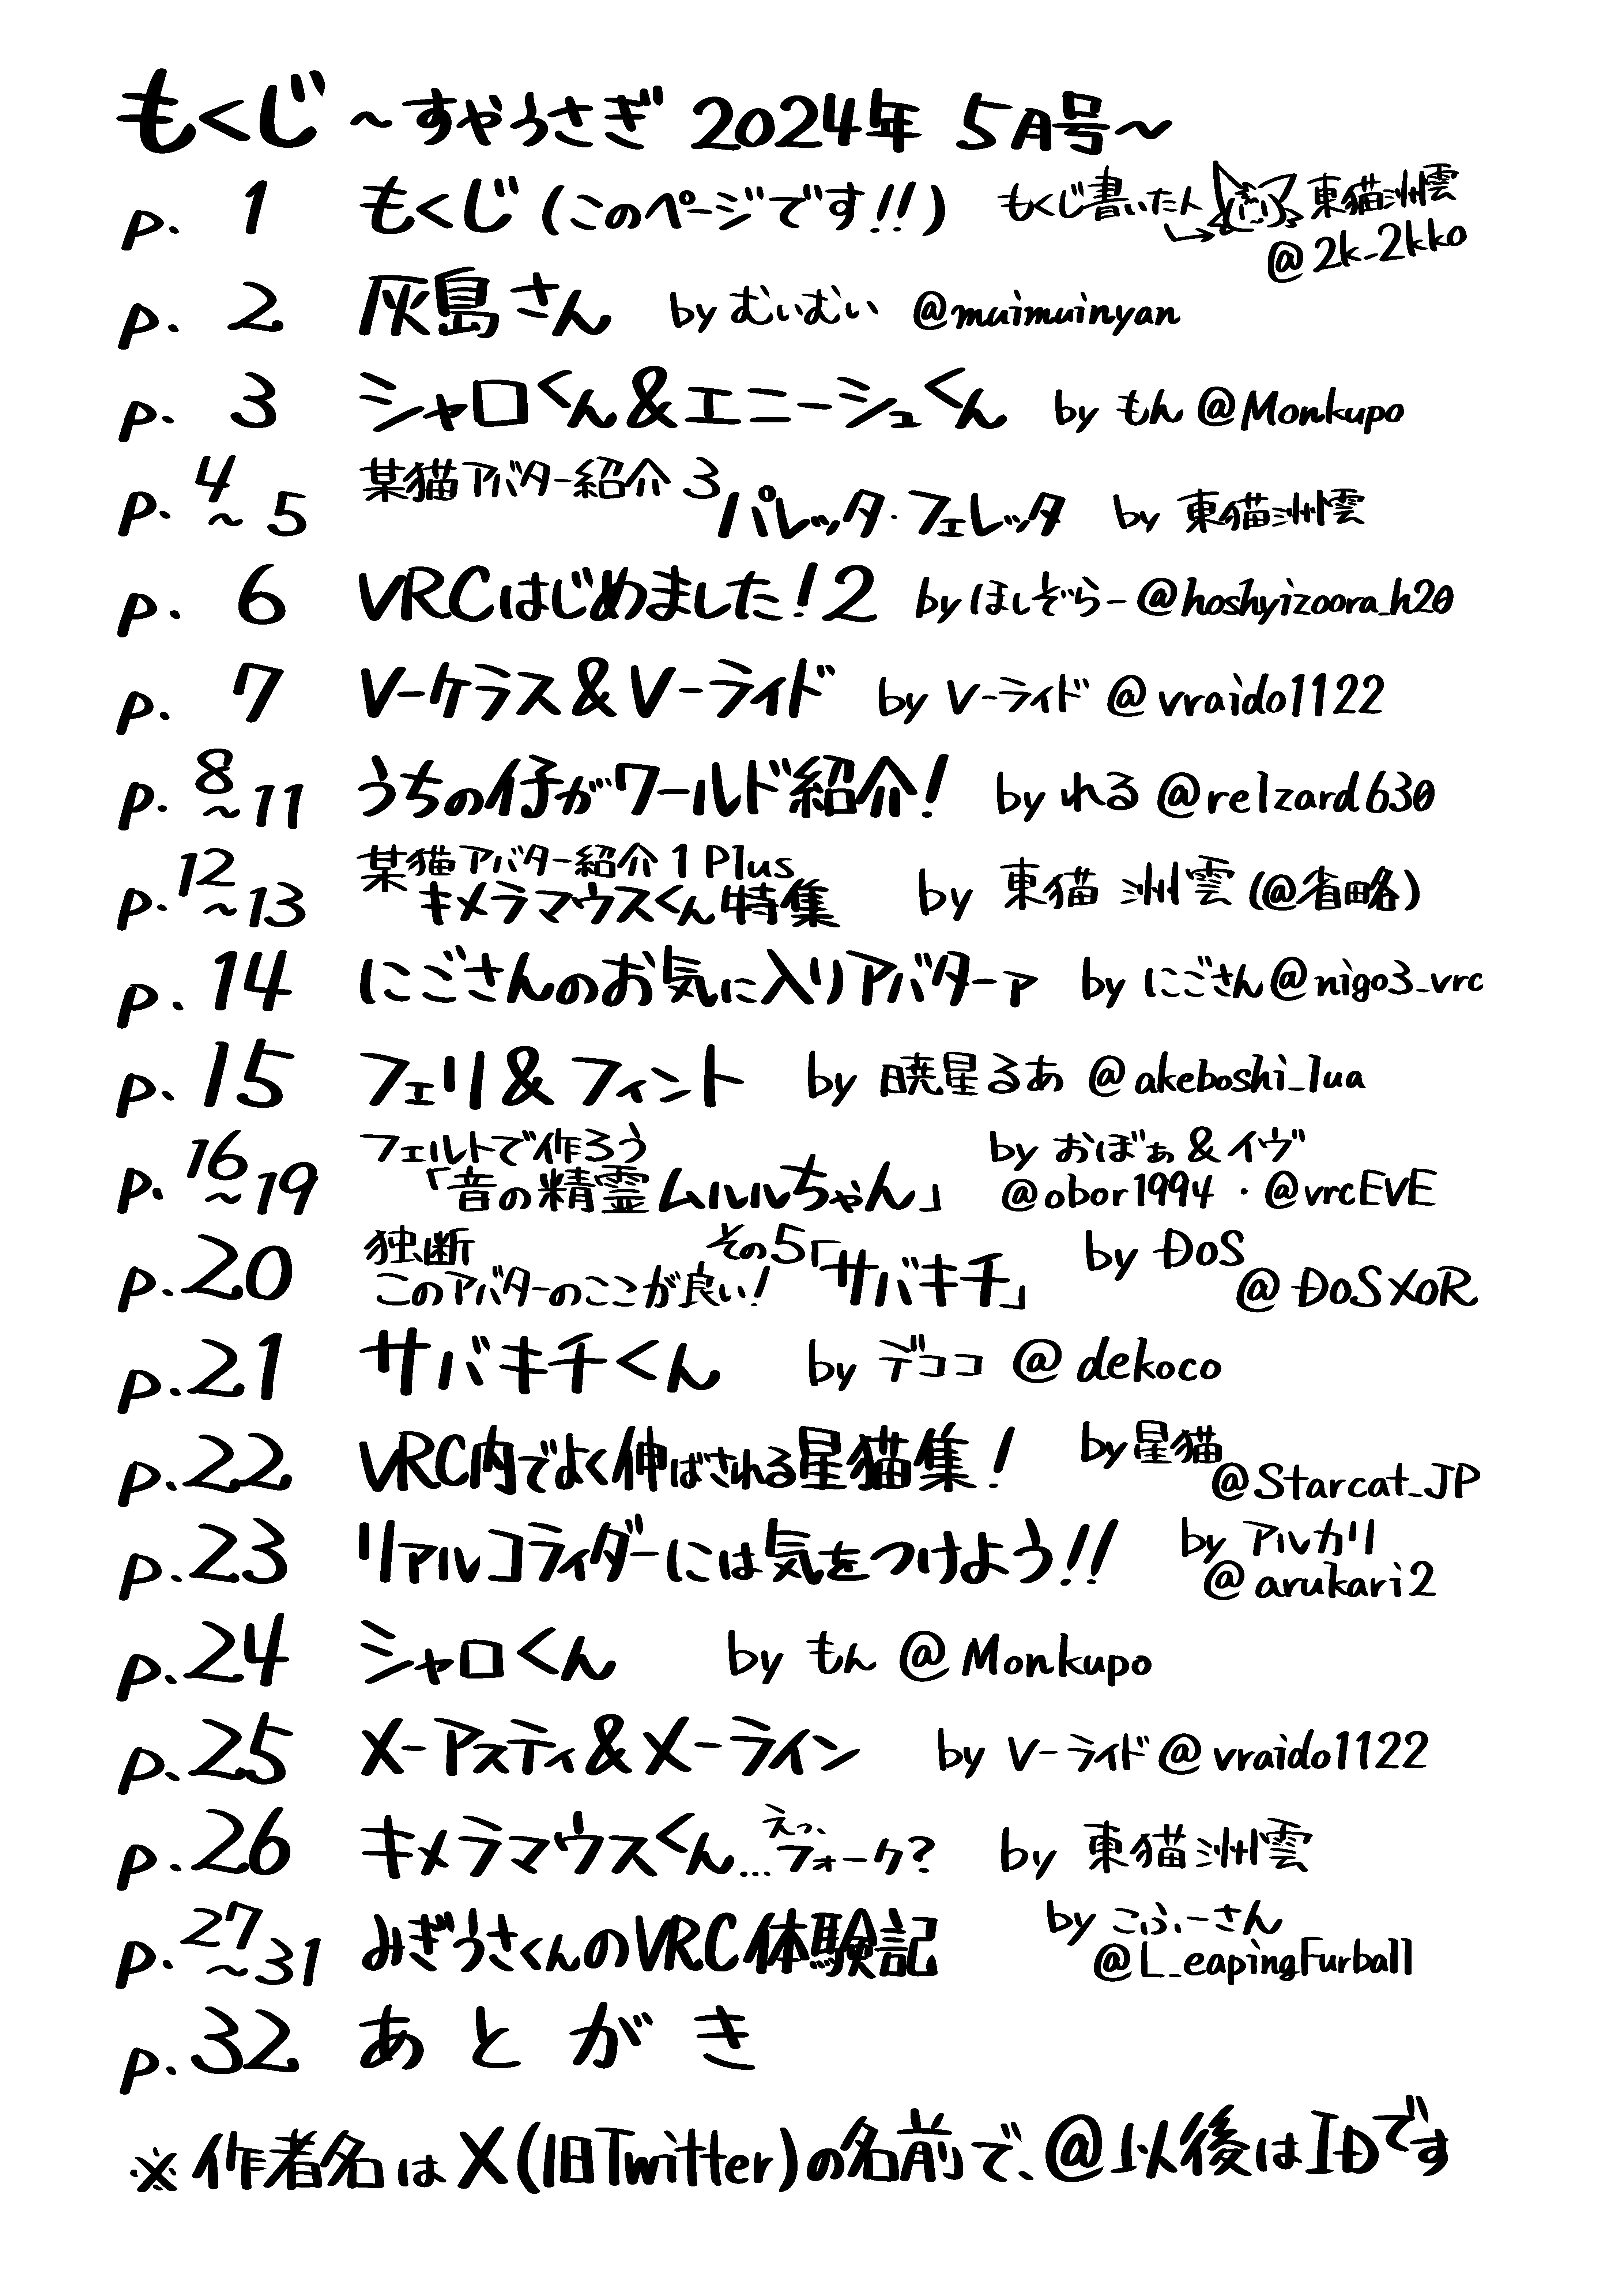 もくじ ～すやうさぎ 2024年 5月号～
p. 1 もくじ (このページです!!) もくじ書いた人 東猫洲雲
@2k_2kko
p. 2 灰島さん by むいむい @muimuinyan
p. 3 シャロくん&エニーシュくん by もん @Monkupo
p. 4～5 某猫アバター紹介 3 パレッタ・フェレッタ by 東猫洲雲
p. 6 VRCはじめました!2 by ほしぞらー @hoshyizoora_h20
p. 7 V-ケラス&V-ライド by V-ライド @vraido1122
p. 8～11 うちの仔がワールド紹介! by れる @relzard630
p. 12～13 某猫アバター紹介 1 Plus
キメラマウスくん特集 by 東猫 洲雲 (@省略)
p. 14 にごさんのお気に入りアバターァ by にごさん @nigo3_vrc
p. 15 フェリ&フィント by 暁星るあ @akeboshi_lua
p. 16～19 フェルトで作ろう by おぼぁ&イヴ
「音の精霊ムルルちゃん」 @obor1994・@vrcEVE
p. 20 独断 その5 「サバキチ」 by ĐoS
このアバターのここが良い! @ĐoSXoR
p. 21 サバキチくん by デココ @dekoco
p. 22 VRC内でよく伸ばされる星猫集! by 星猫
@Starcat_JP
p. 23 リアルコライダーには気をつけよう!! by アルカリ
@arukari2
p. 24 シャロくん by もん @Monkupo
p. 25 X-アスティ&X-ライン by V-ライド @vraido1122
p. 26 キメラマウスくん...えっ、フォーク? by 東猫洲雲
p. 27～31 みぎうさくんのVRC体験記 by こふーさん
@L_eapingFurball
p. 32 あとがき
※作者名はX(旧Twitter)の名前で、@以後はIDです